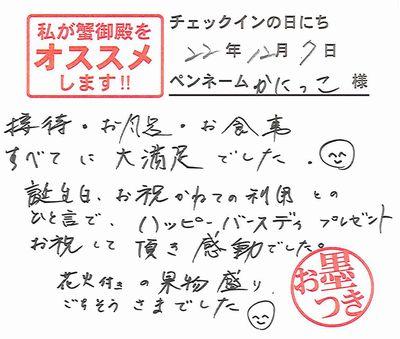 私が蟹御殿を
オススメ
します!!
チェックインの日にち
22年12月7日
ペンネーム かにっこ 様
接待・お風呂・お食事
すべてに大満足でした。
誕生日、お祝かねての利用との
ひと言で、ハッピーバースディプレゼント
お祝して頂き感動でした。
花火付きの果物盛り
ごちそうさまでした
お墨
つき